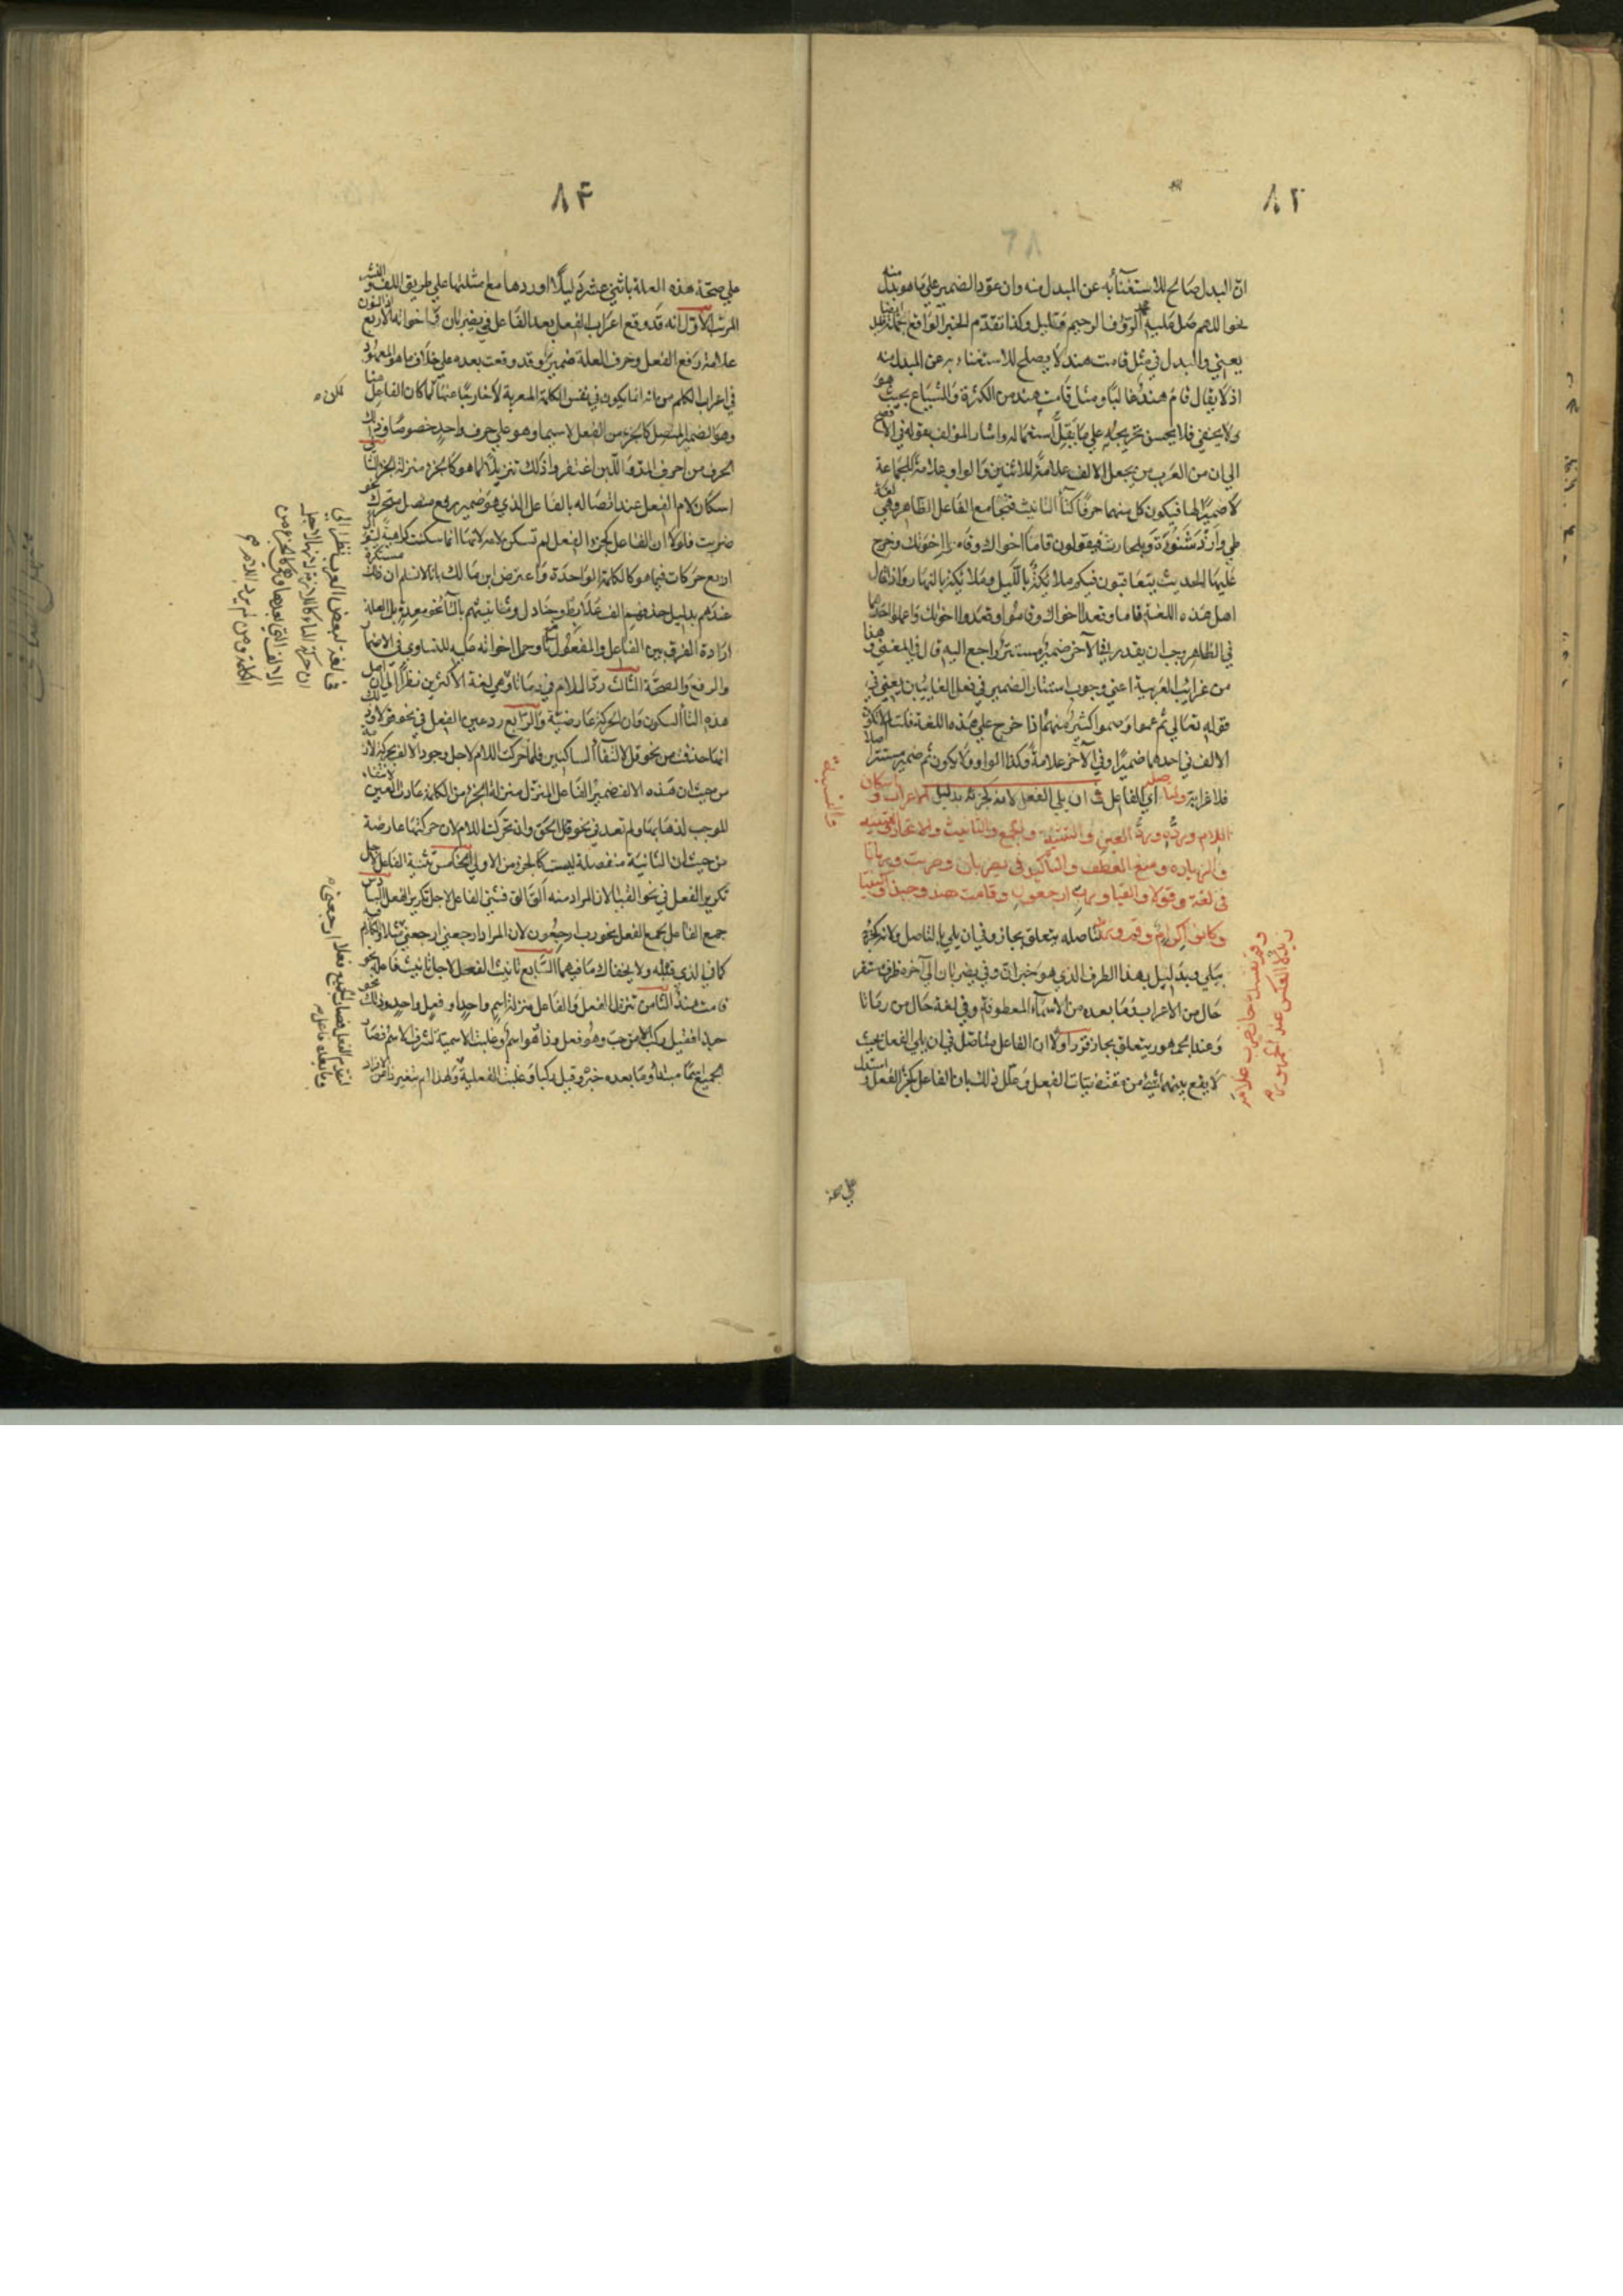 ٨٣
ان البدل صالح للاستغناء به عن المبدل منه وان عود الضمير علي ما هو بدل منه
نحو اللهم صل عليه الرؤف الرحيم قليل وكذا تقدم الخبر الواقع جملة
يعني والبدل في مثل قامت هند لا يصلح للاستغناء به عن المبدل منه
اذ لا يقال قام هند غالبا ومثل قامت هند من الكثرة والشياع بحيث
لا يخفي فلا يحسن تخريجه علي ما يقل استعماله واشار المؤلف بقوله في الافصح
الي ان من العرب من يجعل الالف علامة للاثنين والواو علامة للجماعة
لا ضميرا لهما فيكون كل منهما حرفا كتاء التانيث فتجامع الفاعل الظاهر وهي لغة
طي وازد شنوءة وبلحارث فيقولون قاما اخواك وقاموا اخوتك وخرج
عليها الحديث يتعاقبون فيكم ملائكة بالليل وملائكة بالنهار واذا قال
اهل هذه اللغة قاما وقعدا اخواك وقاموا وقعدوا اخوتك واعملوا احدهما
في الظاهر وجب ان يقدر في الآخر ضمير مستتر راجع اليه قال في المغني وهذا
من غرايب العربية اعني وجوب استتار الضمير في فعل الغايبين يعني في
قوله تعالي ثم عموا وصموا كثير منهم اذا خرج علي هذه اللغة قلت
الالف في احدهما ضميرا وفي الآخر علامة وكذا الواو ولا يكون ثم ضمير مستتر اصلا
فلا غرابة واصله اي الفاعل في ان يلي الفعل لانه كجزئه بدليل الاعراب واسكان
اللام ورده ورد العين والتثنية والجمع والتانيث والاتحاد
والزيادة ومنع العطف والتاكيد في يضربان وضربت ورماتا
في لغة وقولا والقيا ورب ارجعون وقامت هند وحبذا
لتاصله يتعلق بجاز وفي ان يلي بالتاصل ولانه كجزئه
بيلي وبدليل بهذا الظرف الذي هو خبر ان وفي يضربان الي آخره ظرف مستقر
حال من الاعراب فما بعده من الاسماء المعطوفة وفي لغة حال من رماتا
وعند الجمهور يتعلق بجاز قرر اولا ان الفاعل متاصل في ان يلي الفعل بحيث
لا يقع بينهما شيء من مقتضيات الفعل وعلل ذلك بان الفاعل كجزء الفعل واستدل
علي صحة
٨۴
علي صحة هذه العلة باثني عشر دليلا اوردها مع مثلتها علي طريق اللف والنشر
المرتب الاول انه قد وقع اعراب الفعل بعد الفاعل في يضربان واخواته الاربع اذ النون
علامة رفع الفعل وحرف العلة ضمير وقد وقعت بعده علي خلاف ما هو المعهود
في اعراب الكلم من انه انما يكون في نفس الكلمة المعربة لا خارجا عنها لكن لما كان الفاعل هنا
وهو الضمير المتصل كالجزء من الفعل لا سيما وهو علي حرف واحد خصوصا وذلك
الحرف من احرف المد واللين اغتفروا ذلك تنزيلا لما هو كالجزء منزلة الجزء الثاني
اسكان لام الفعل عند اتصاله بالفاعل الذي هو ضمير رفع متصل متحرك نحو
ضربت فلولا ان الفاعل كجزء الفعل لم تسكن لامه لانها انما سكنت كراهية توالي
اربع حركات فيما هو كالكلمة الواحدة واعترض ابن مالك بانا لا نسلم ان ذلك مستكره
عندهم بدليل حذفهم الف علابط وجنادل وتانيثهم بالتاء نحو معدة بل العلة
ارادة الفرق بين الفاعل والمفعول في نا وحمل اخواته عليه للتساوي في الاضمار
والرفع والصحة الثالث رد اللام في رماتا وهي لغة الاكثرين نظرا الي ان اصل
هذه التاء السكون وان الحركة عارضية والرابع رد عين الفعل في نحو قولا
انما حذفت من نحو قل لالتقاء الساكنين فلما حركت اللام لاجل وجود الالف
من حيث ان هذه الالف ضمير الفاعل المنزل منزلة الجزء من الكلمة عادت العين لانتفاء
الموجب لذهابها ولم تعد في نحو قل الحق وان تحركت اللام لان حركتها عارضة
من حيث ان الثانية منفصلة ليست كالجزء من الاولي الخامس تثنية الفاعل لاجل
تكرير الفعل في نحو القيا لان المراد منه الق الق فثني الفاعل لاجل تكرير الفعل السادس
جمع الفاعل لجمع الفعل نحو رب ارجعون لان المراد ارجعني ارجعني مثلا والكلام فيه
كما في الذي قبله ولا يخفاك ما فيهما السابع تانيث الفعل لاجل تانيث فاعله نحو
قامت هند الثامن تنزل الفعل والفاعل منزلة اسم واحد او فعل واحد وذلك نحو
حبذا فقيل ركب الاسم من حب وهو فعل وذا وهو اسم وغلبت الاسمية لشرف الاسم فصار
الجميع اسما مبتدأ وما بعده خبر وقيل ركبا وغلبت الفعلية ولهذا لم تتغير ذا عن الافراد